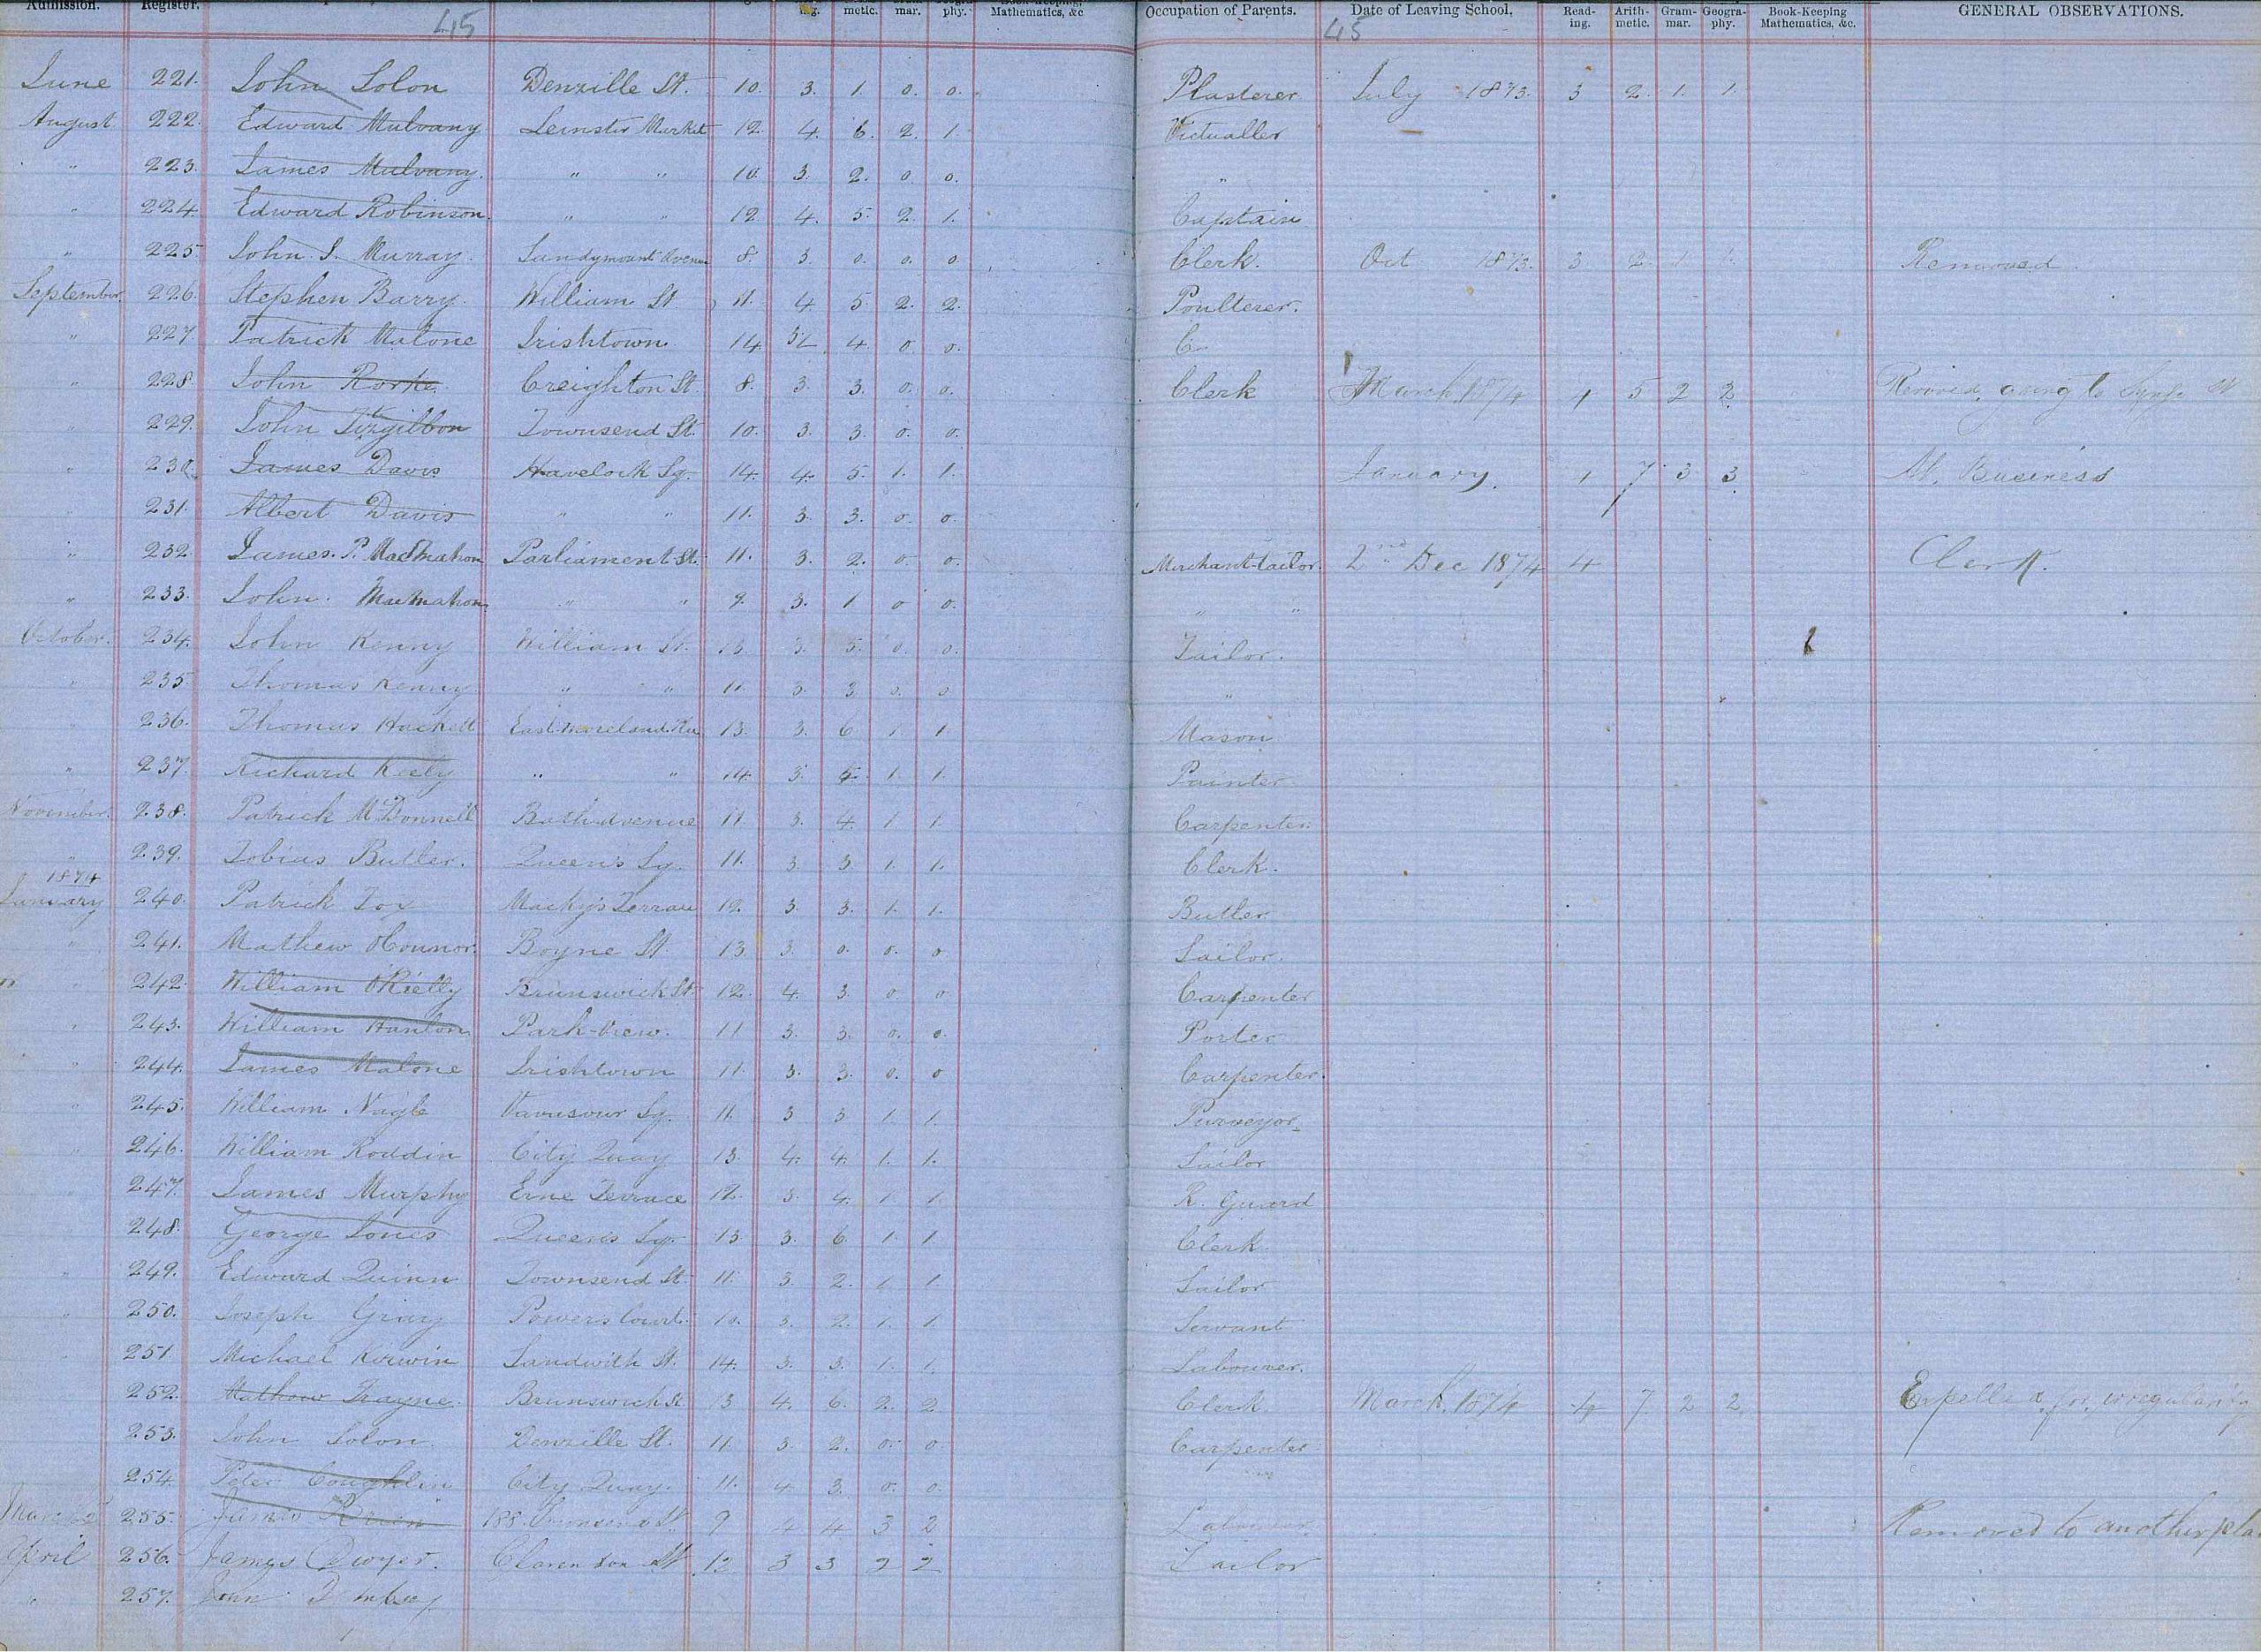 Admission. Register. ing. metic. mar. phy. Book-Keeping, Mathematics, &c Occupation of Parents. Date of Leaving School. Read-ing. Arith-metic. Gram-mar. Geogra-phy. Book-Keeping Mathematics, &c. GENERAL OBSERVATIONS.
45 45
June 221. John Solon Denzille St. 10. 3. 1. 0. 0. Plasterer July 1873. 3 2. 1. 1.
August 222. Edward Mulvany Leinster Market 12 4. 6. 2. 1. Victualler
" 223. James Mulvany. " " 10. 3. 2. 0. 0. "
" 224. Edward Robinson. " " 12 4. 5. 2. 1. Captain
" 225. John J. Murray. Sandymount Avenue 8. 3. 0. 0. 0 Clerk. Oct 1873. 3 2 1 1. Removed.
September 226. Stephen Barry. William St 11. 4. 5 2. 2. Poulterer.
" 227. Patrick Malone Irishtown. 14. 4. 0. 0. C
" 228. John Rorke. Creighton St. 8. 3. 3. 0. 0. Clerk March 1874 4 5 2 2 going to
" 229. John Fitzgibbon Townsend St. 10. 3. 3. 0. 0.
" 230. James Davis Havelock Sq. 14. 4. 5. 1. 1. January. 4 7 3 3 Business
" 231. Albert Davis " " 11. 3. 3. 0. 0.
" 232 James. P. MacMahon Parliament St. 11. 3. 2. 0. 0. Merchant-tailor. 2nd Dec 1874 4 Clerk.
" 233. John. MacMahon " " 9. 3. 1. 0 0. " "
October. 234. John Kenny William St. 13. 3. 5. 0. 0. Tailor.
" 235. Thomas Kenny " " 11. 3. 3. 0. 0. "
236. Thomas Hackett East-Moreland 13. 3. 6 1 1 Mason
" 237. Richard Kiely " " 14. 3. 5. 1. 1. Painter
November. 238. Patrick McDonnell Bath-Avenue 11 3. 4. 1 1. Carpenter.
" 239. Tobias Butler. Queen's Sq. 11. 3. 3. 1. 1. Clerk.
1874
January 240. Patrick Fox Macky's Terrace 12. 3. 3. 1. 1. Butler
" 241. Mathew O'Connor. Boyne St 13 3. 0. 0. 0 Sailor.
" 242. William O'Rielly Brunswick St. 12. 4. 3. 0. 0 Carpenter
" 243. William Hanlon Park-View. 11 3. 3. 0. 0. Porter
" 244. James Malone Irishtown 11. 3. 3. 0. 0 Carpenter.
" 245. William Nagle Vavasour Sq. 11. 3 3 1. 1. Purveyor
" 246. William Roddin City Quay 13. 4. 4. 1. 1. Sailor
247. James Murphy Erne Terrace 12. 3. 4. 1 1. R. Guard
248. George Jones Queen's Sq. 13 3. 6. 1. 1 Clerk.
" 249. Edward Quinn Townsend St. 11. 3. 2. 1. 1. Sailor
" 250. Joseph Gray Powers Court. 10. 3. 2. 1. 1. Servant
251. Michael Kirwin Sandwith St. 14. 3. 3. 1. 1. Labourer.
252. Mathew Trayne. Brunswick St. 13 4. 6. 2. 2 Clerk. March, 1874 4 7 2 2 Expelled for irregularity
253. John Solon Denzille St. 11. 3. 2. 0. 0. Carpenter
254. Peter Coughlin City Quay. 11. 4 3. 0. 0. "
March 255. James 188 Townsend St. 9 4 4 3 2 Labourer Removed to another
April 256. James Dwyer. Clarendon St. 12 3 3 2 2 Tailor
" 257. John